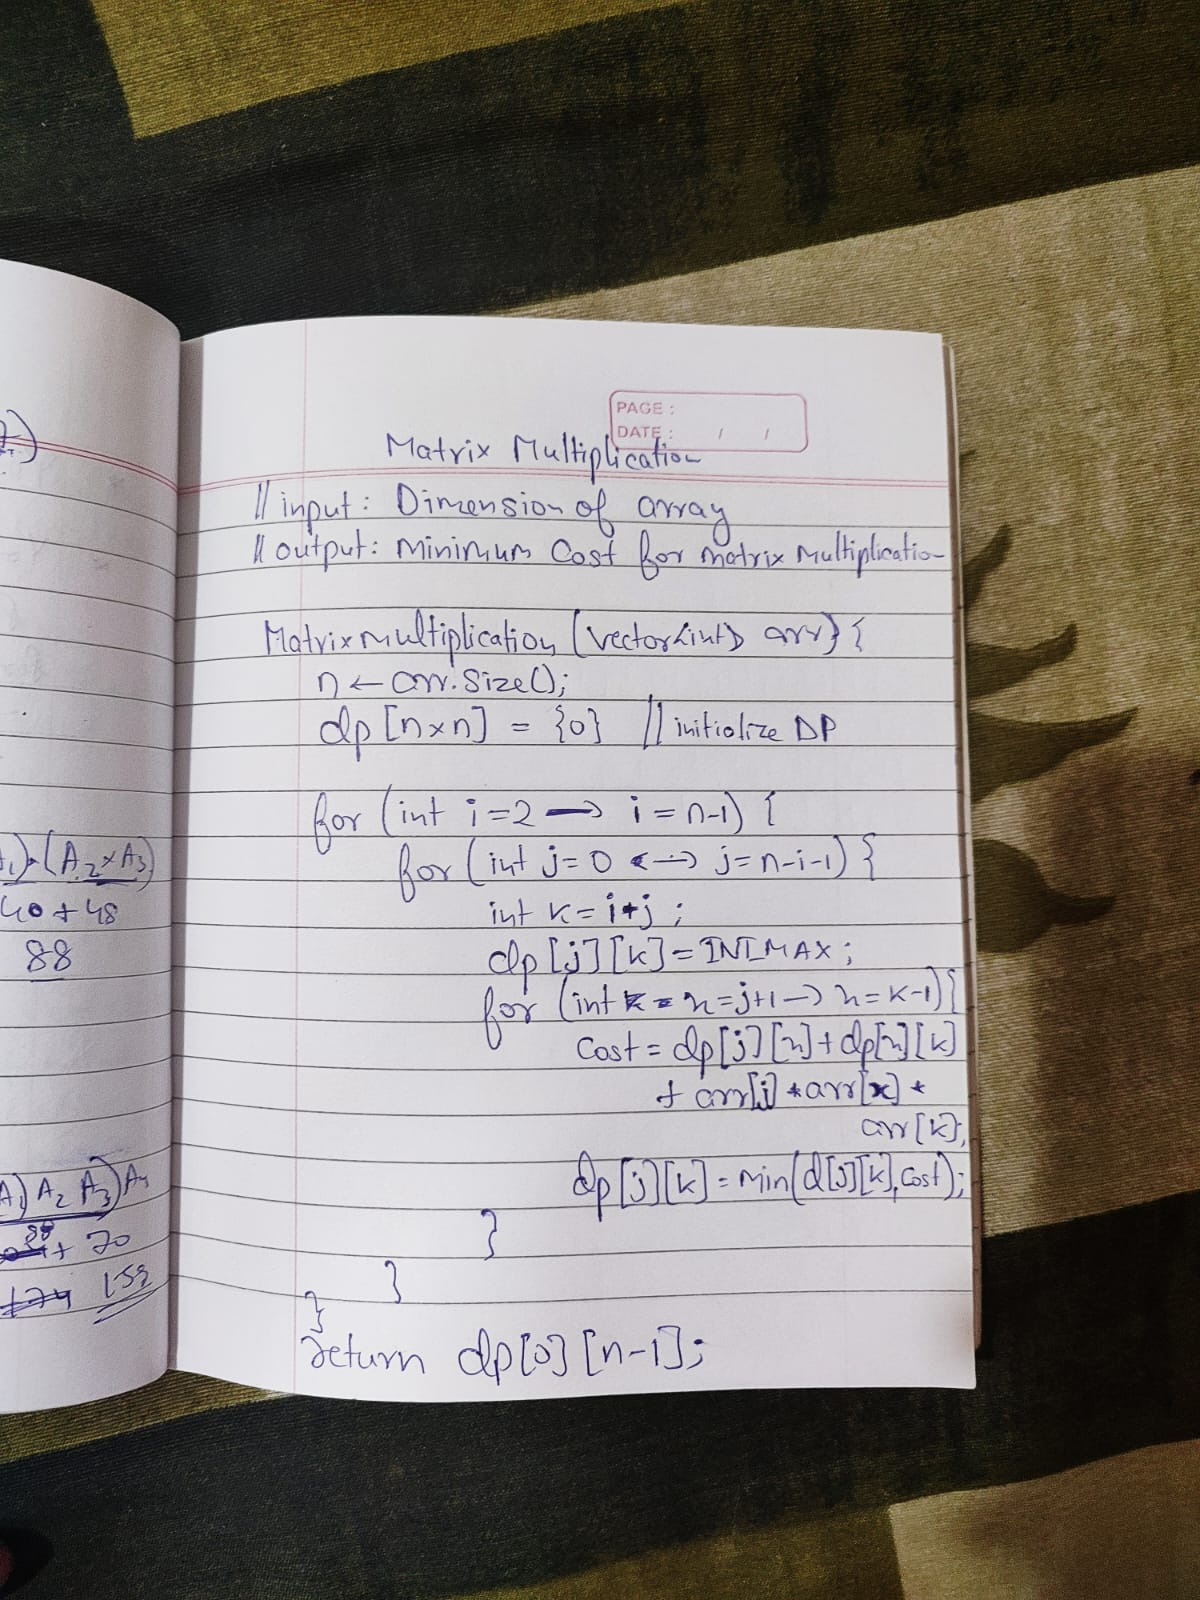 A₁)·(A₂×A₃)
40+48
88
A₁) A₂ A₃) A₄
88
+ 70
158
PAGE :
DATE : / /
Matrix Multiplication
// input: Dimension of array
// output: Minimum Cost for matrix Multiplication
Matrixmultiplication (vector<int> arr) {
n ← arr.size();
dp [n×n] = {0} // initialize DP
for (int i=2 → i = n-1) {
for (int j=0 ↔ j=n-i-1) {
int k = i+j ;
dp[j][k] = INT_MAX ;
for (int x=j+1 → x=k-1) {
Cost = dp[j][x] + dp[x][k]
+ arr[j] * arr[x] *
arr[k];
dp[j][k] = Min(d[j][k], cost);
}
}
}
return dp[0][n-1];